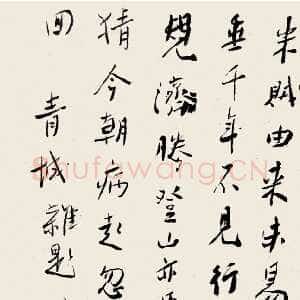 米賦由来未易
垂千年不見行
規濟勝登山亦
猜今朝病起忽
回 青城雜題
Shufawang.CN